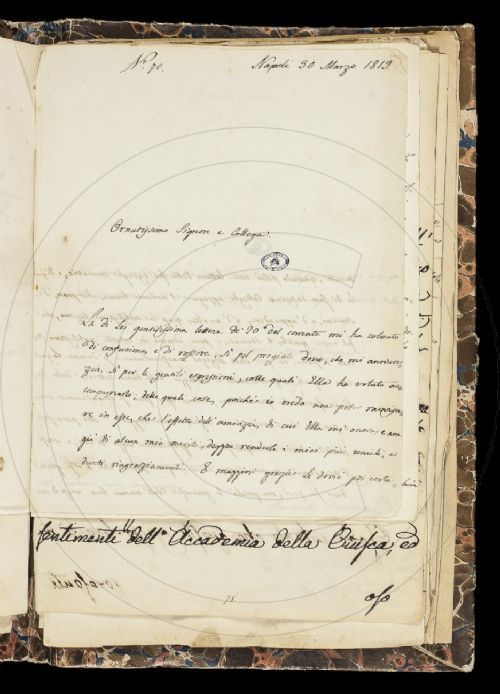 N.° 70. Napoli 30 Marzo 1819.
Ornatissimo Signore e Collega.
La di Lei gentilissima lettera de' 20 del corrente mi ha colmato
di confusione, e di rossore, sì pel pregiato dono, che mi annun-
zia, sì per le gentili espressioni, colle quali Ella ha voluto ac-
compagnarlo; delle quali cose, poichè io credo non poter
re in esse, che l'effetto dell' amicizia, di cui Ella mi onora, e non
già di alcun mio merito, deggio renderle i miei più umili, e
divoti ringraziamenti. E maggiori grazie Le dovrò poi
sentimenti dell' Accademia della Crusca, ed
75. oso